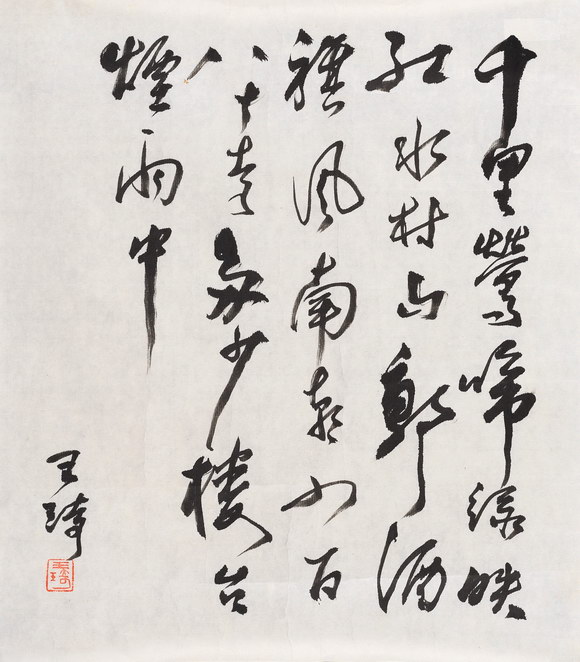 千里鶯啼绿映
红水村山郭酒
旗风南朝四百
八十寺多少楼台
煙雨中
王琦
王琦